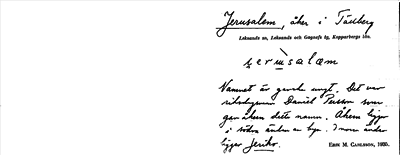 Jerusalem, åker i Tällberg
Leksands sn, Leksands och Gagnefs tg, Kopparbergs län.
jerusalæm
Namnet är ganska ungt. Det var
Daniel Persson som
gav åkern detta namn. Åkern ligger
i södra ändan av byn. I norra ändan
ligger Jeriko.
ERIK M. CARLSSON, 1935.